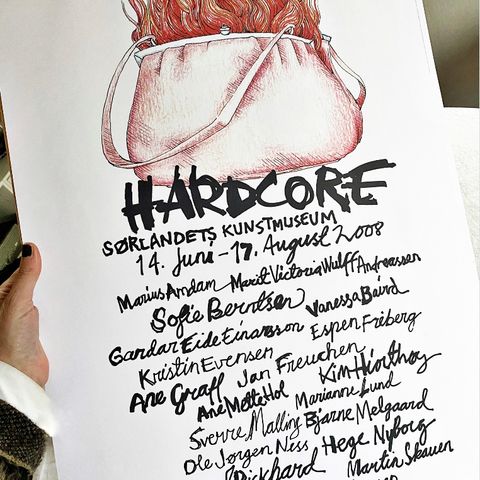 HARDCORE
SØRLANDETS KUNSTMUSEUM
14. Juni - 17. August 2008
Marius Amdam Marit Victoria Wulff Andreassen
Sofie Berntsen Vanessa Baird
Gardar Eide Einarsson Espen Friberg
Kristin Evensen Jan Freuchen Kim Hiorthøy
Ane Graff Ane Mette Hol Marianne Lund
Sverre Malling Bjarne Melgaard
Ole Jørgen Ness Hege Nyborg
Rickhard Martin Skauen